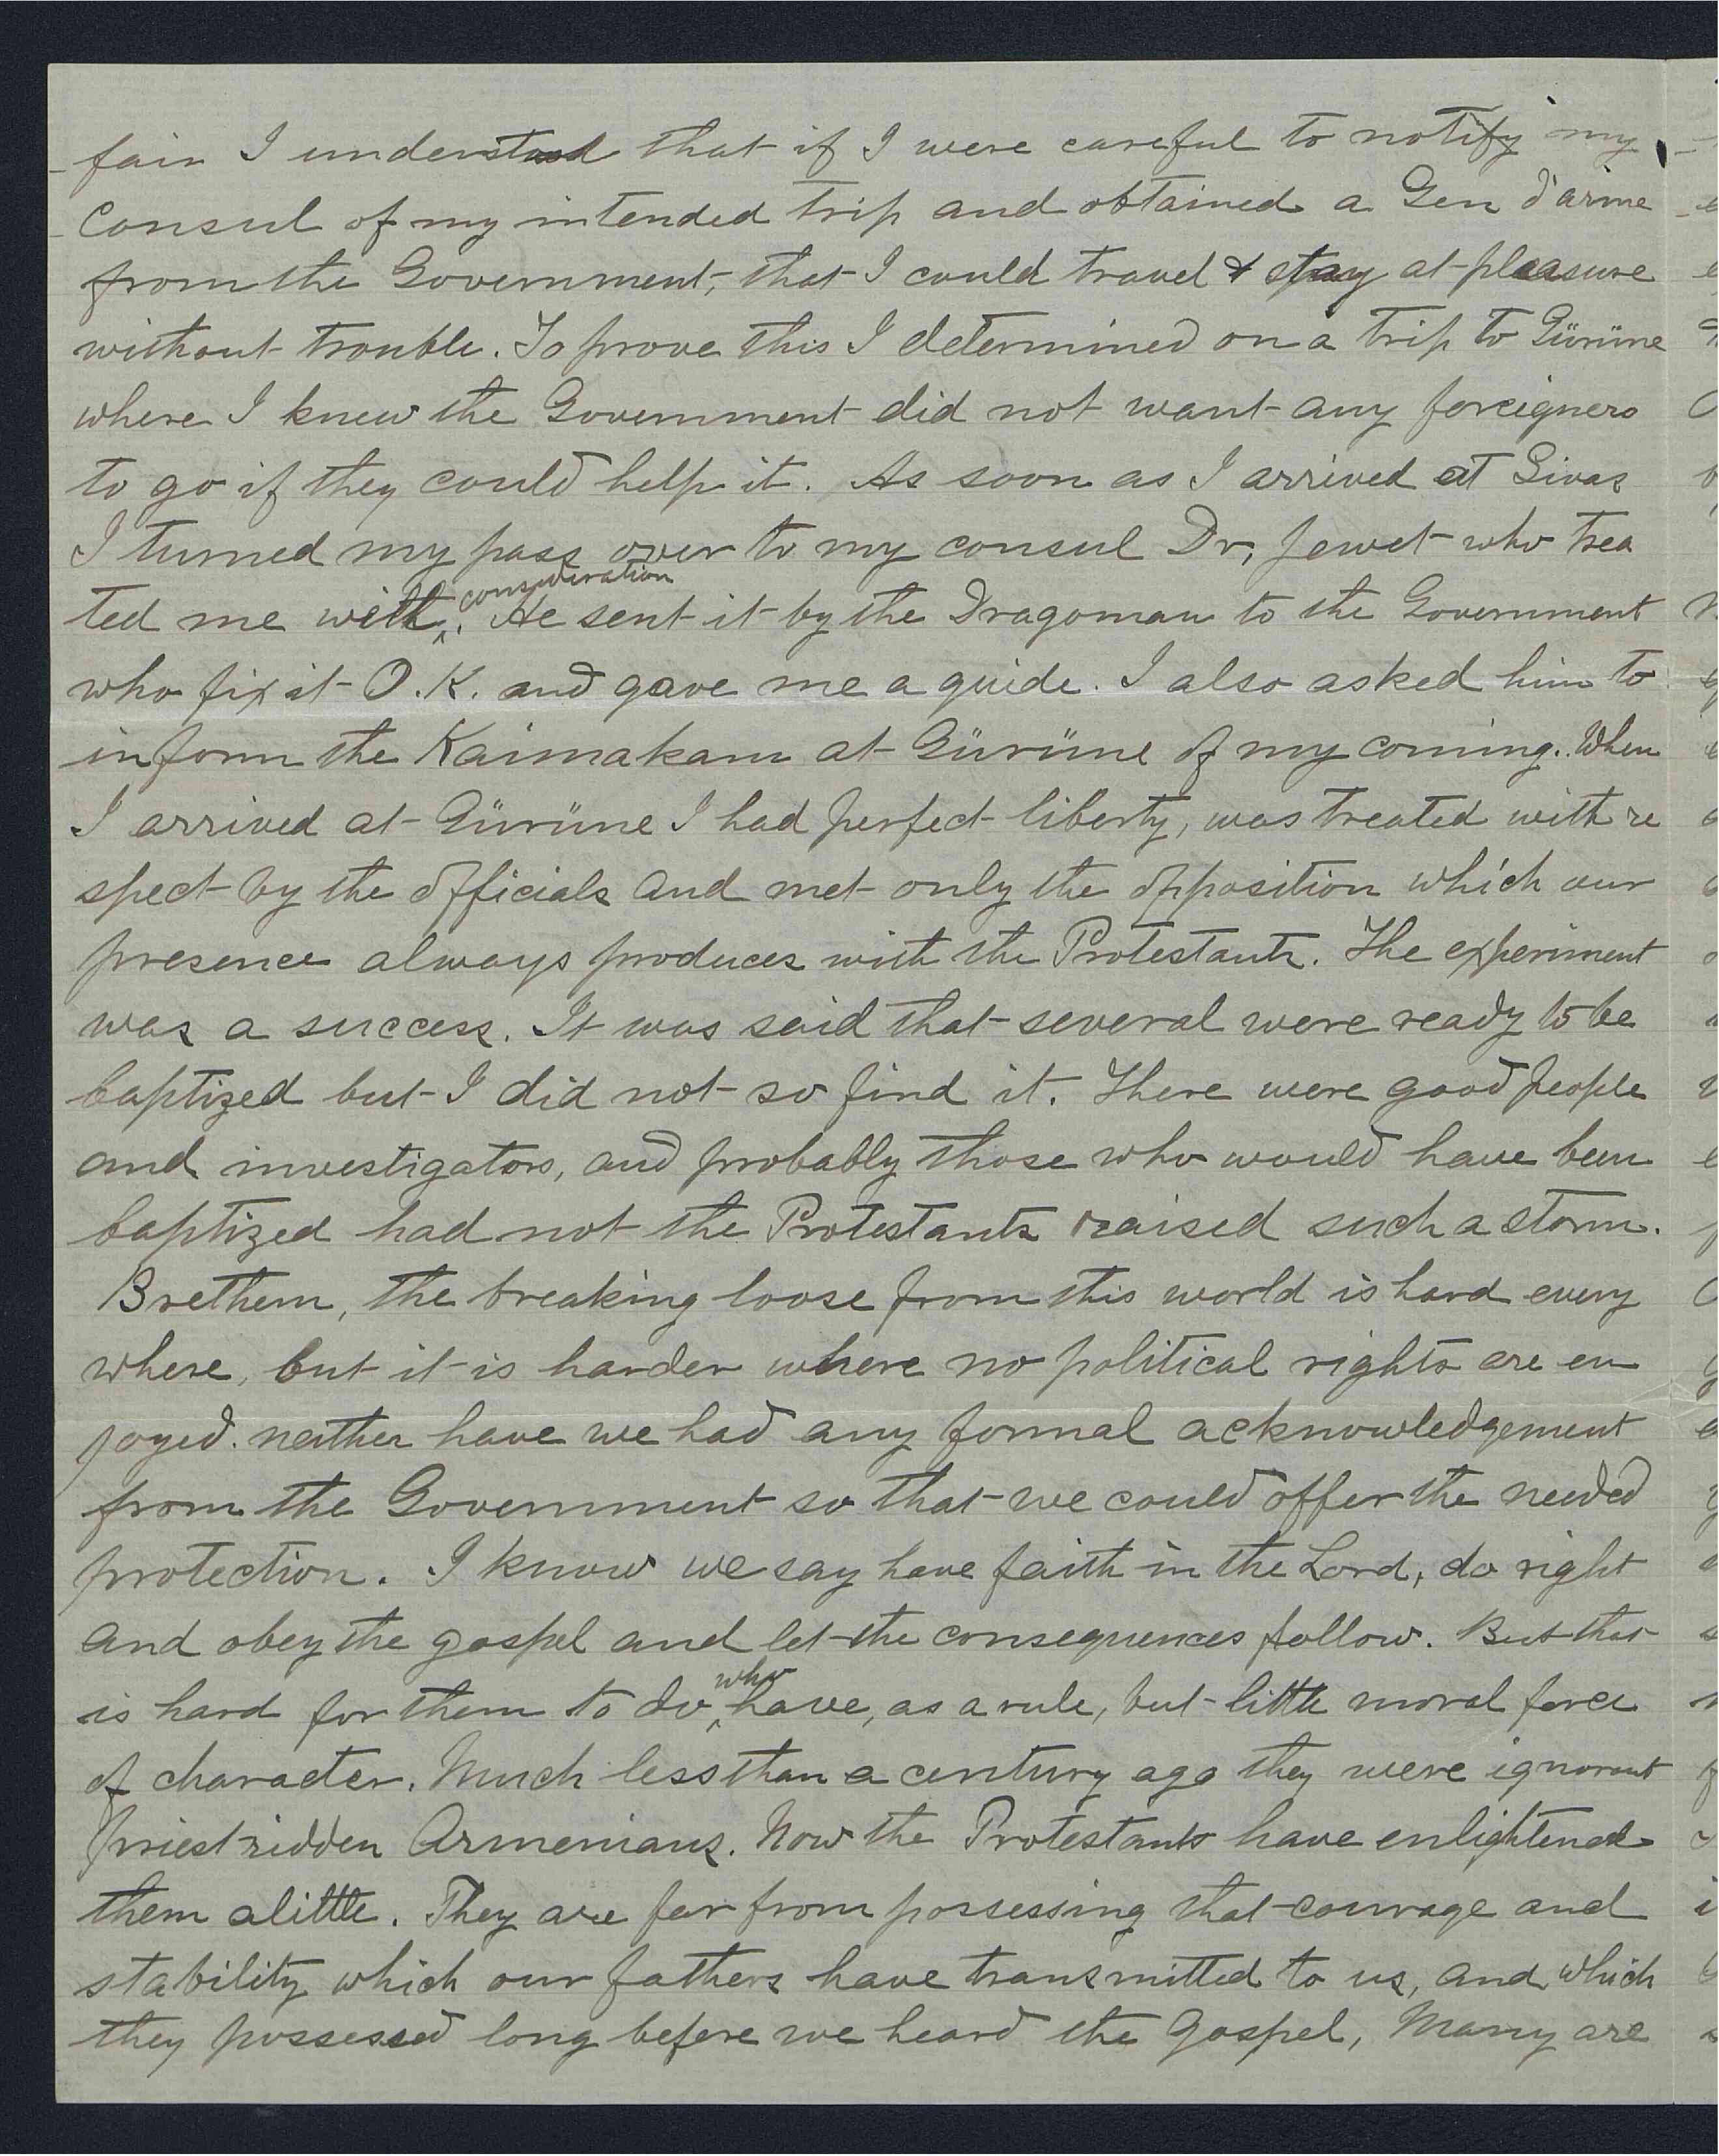 fair I understood that if I were careful to notify my
Consul of my intended trip and obtained a Gen d'arme
from the Government, that I could travel & stay at pleasure
without trouble. To prove this I determined on a trip to Gürüne
where I knew the Government did not want any foreigners
to go if they could help it. As soon as I arrived at Sivas
I turned my pass over to my consul Dr. Jewet who trea
ted me with consideration. He sent it by the Dragoman to the Government
who fix it O.K. and gave me a guide. I also asked him to
inform the Kaimakam at Gürüne of my coming. When
I arrived at Gürüne I had perfect liberty, was treated with re
spect by the officials and met only the opposition which our
presence always produces with the Protestants. The experiment
was a success. It was said that several were ready to be
baptized but I did not so find it. There were good people
and investigators, and probably those who would have been
baptized had not the Protestants raised such a storm.
Brethern, the breaking loose from this world is hard every
where, but it is harder where no political rights are en
joyed. neither have we had any formal acknowledgement
from the Government so that we could offer the needed
protection. I know we say have faith in the Lord, do right
and obey the gospel and let the consequences follow. But that
is hard for them to do who have, as a rule, but little moral force
of character. Much less than a century ago they were ignorant
priest ridden Armenians. Now the Protestants have enlightened
them alittle. They are far from possessing that courage and
stability which our fathers have transmitted to us, and which
they possessed long before we heard the Gospel, Many are